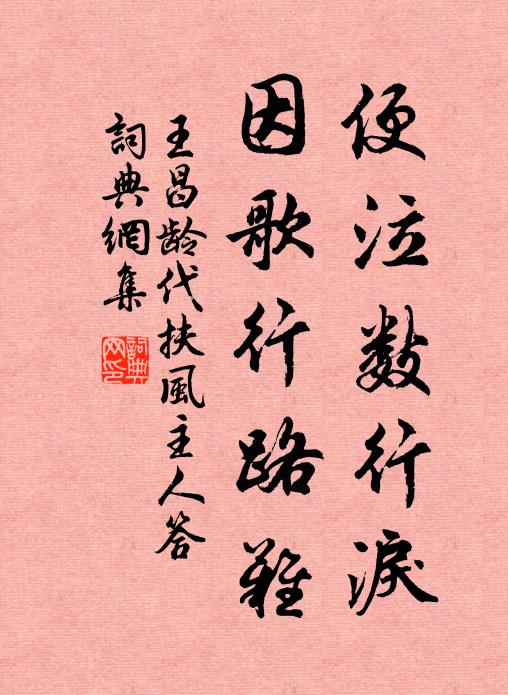 便泣数行淚
因歌行路難
王昌齡代扶風主人答
詞典網集
詞典網印